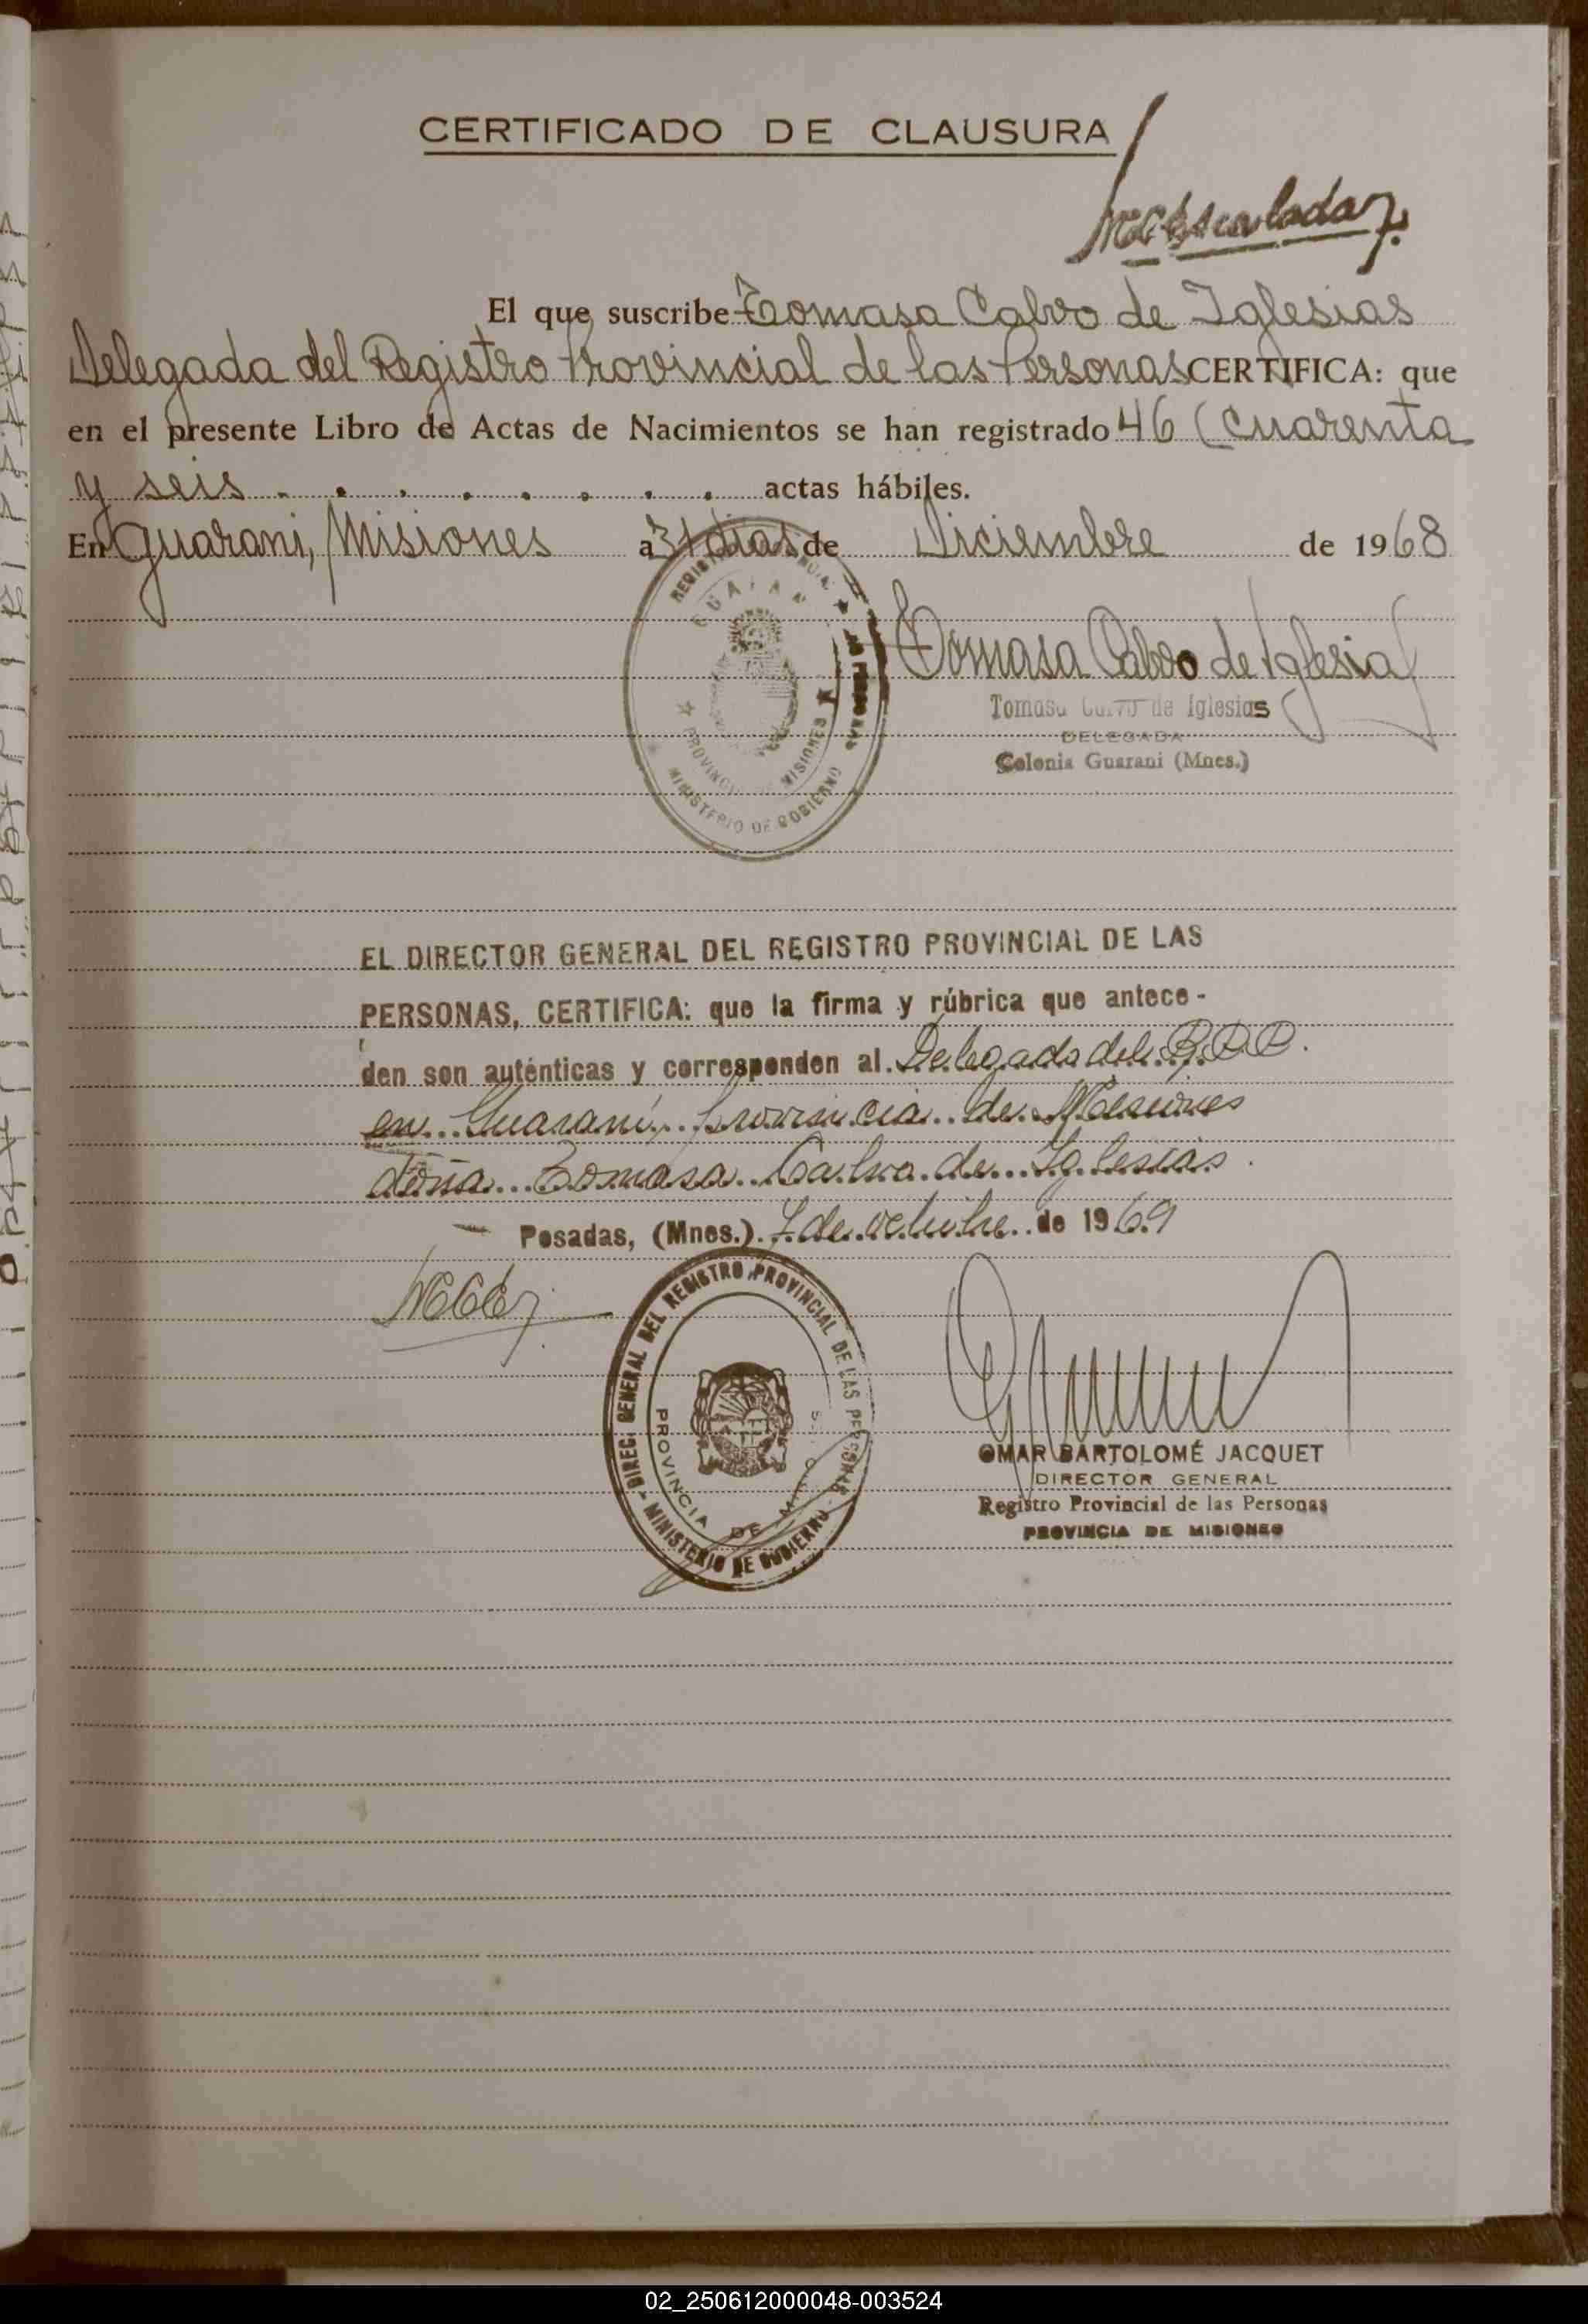 CERTIFICADO DE CLAUSURA
El que suscribe Tomasa Calvo de Iglesias
Delegada del Registro Provincial de las Personas CERTIFICA: que
en el presente Libro de Actas de Nacimientos se han registrado 46 (Cuarenta
y seis . . . . . . . . actas hábiles.
En Guarani, Misiones a 31 dias de Diciembre de 1968
Tomasa Calvo de Iglesias
Tomasa Calvo de Iglesias
DELEGADA
Colonia Guarani (Mnes.)
PROVINCIA DE MISIONES
MINISTERIO DE GOBIERNO
EL DIRECTOR GENERAL DEL REGISTRO PROVINCIAL DE LAS
PERSONAS, CERTIFICA: que la firma y rúbrica que antece-
den son auténticas y corresponden al Delegada del R.P.P.
en Guaraní, Provincia de Misiones
doña Tomasa Calvo de Iglesias.
Posadas, (Mnes.) 7 de octubre de 1969
DIREC. GENERAL DEL REGISTRO PROVINCIAL DE LAS PERSONAS
PROVINCIA DE MISIONES
- MINISTERIO DE GOBIERNO -
OMAR BARTOLOMÉ JACQUET
DIRECTOR GENERAL
Registro Provincial de las Personas
PROVINCIA DE MISIONES
02_250612000048-003524